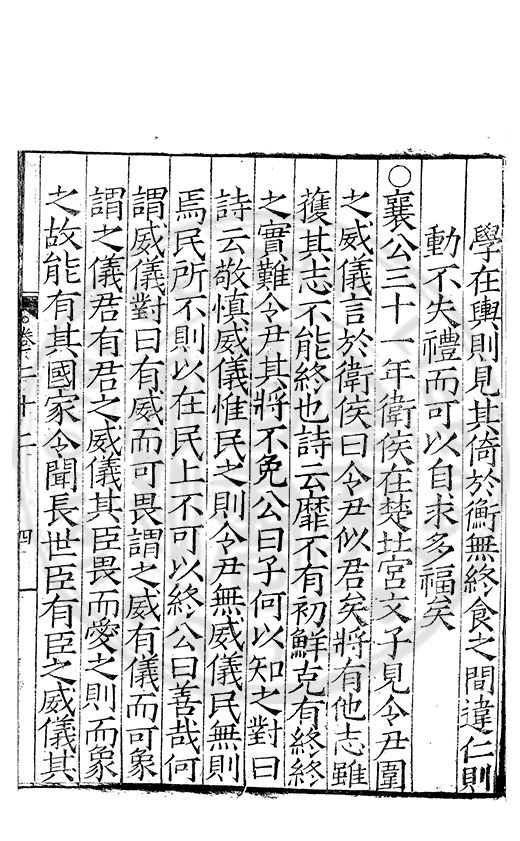 學在輿則見其倚於衡無終食之間違仁則
動不失禮而可以自求多福矣
○襄公三十一年衛侯在楚北宮文子見令尹圍
之威儀言於衛侯曰令尹似君矣將有他志雖
獲其志不能終也詩云靡不有初鮮克有終終
之實難令尹其將不免公曰子何以知之對曰
詩云敬慎威儀惟民之則令尹無威儀民無則
焉民所不則以在民上不可以終公曰善哉何
謂威儀對曰有威而可畏謂之威有儀而可象
謂之儀君有君之威儀其臣畏而愛之則而象
之故能有其國家令聞長世臣有臣之威儀其
卷二十二
四